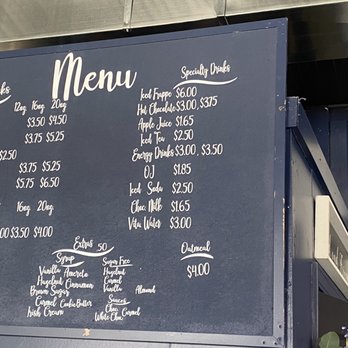 Menu
ks
12og 16og 20og
$3.50 $4.50
$3.75 $5.25
$2.50
$3.75 $5.25
$5.75 $6.50
16og 20og
$3.50 $4.00
Specialty Drinks
Iced Frappe $6.00
Hot Chocolate $3.00, $3.75
Apple Juice $1.65
Iced Tea $2.50
Energy Drinks $3.00, $3.50
OJ $1.85
Iced Soda $2.50
Choc. Milk $1.65
Vita Water $3.00
Extras .50
Syrup
Vanilla Amereto
Hazelnut Cinnamon
Brown Sugar
Carmel Cookie Butter
Irish Cream
Sugar Free
Hazelnut
Carmel
Vanilla Almond
Sauces
Choc Carmel
White Choc
Oatmeal
$4.00